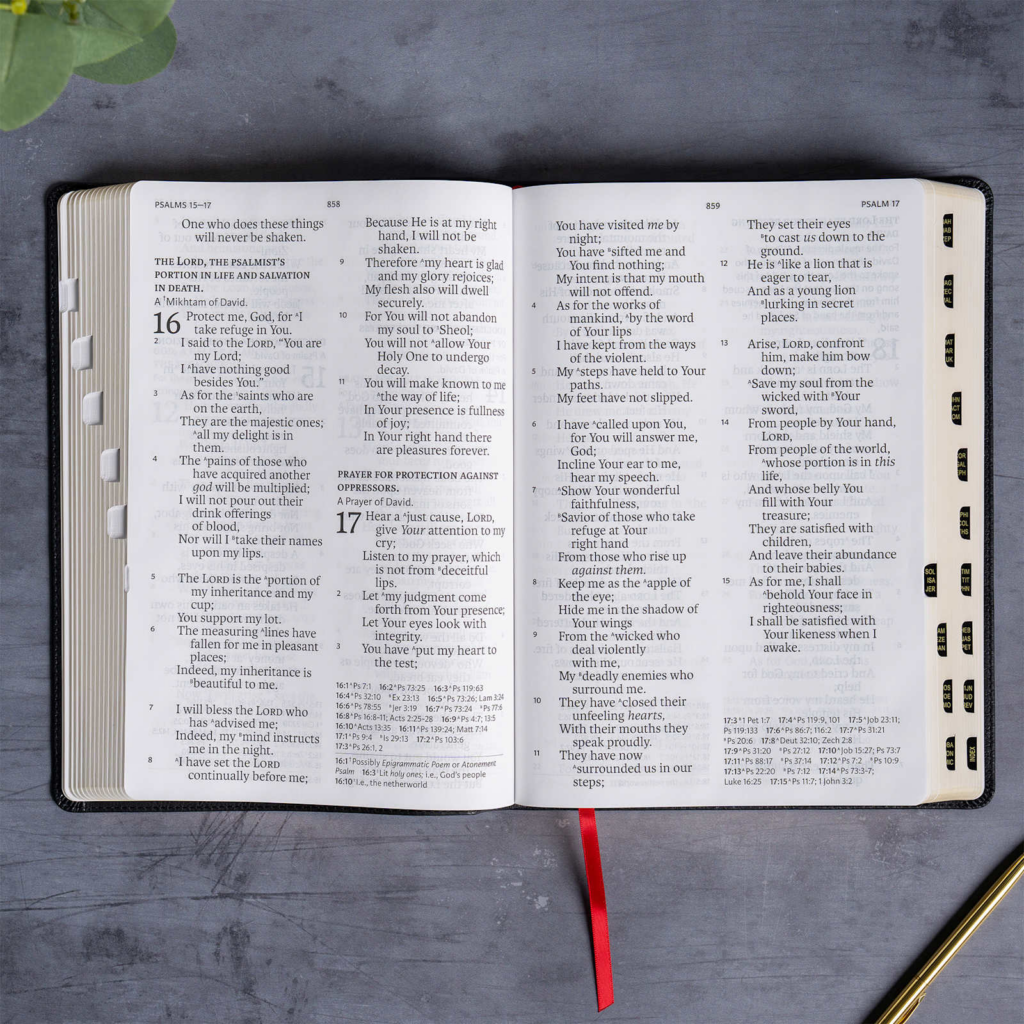 PSALMS 15—17
858
One who does these things
will never be shaken.
THE LORD, THE PSALMIST'S
PORTION IN LIFE AND SALVATION
IN DEATH.
A †Mikhtam of David.
16 Protect me, God, for ᴬI
take refuge in You.
2 I said to the LORD, "You are
my Lord;
I ᴬhave nothing good
besides You."
3 As for the ᴬsaints who are
on the earth,
They are the majestic ones;
ᴬall my delight is in
them.
4 The ᴬpains of those who
have acquired another
god will be multiplied;
I will not pour out their
drink offerings
of blood,
Nor will I ᴮtake their names
upon my lips.
5 The LORD is the ᴬportion of
my inheritance and my
cup;
You support my lot.
6 The measuring ᴬlines have
fallen for me in pleasant
places;
Indeed, my inheritance is
ᴮbeautiful to me.
7 I will bless the LORD who
has ᴬadvised me;
Indeed, my ᴮmind instructs
me in the night.
8 ᴬI have set the LORD
continually before me;
Because He is at my right
hand, I will not be
shaken.
9 Therefore ᴬmy heart is glad
and my glory rejoices;
My flesh also will dwell
securely.
10 For You will not abandon
my soul to ¹Sheol;
You will not ᴬallow Your
Holy One to undergo
decay.
11 You will make known to me
ᴬthe way of life;
In Your presence is fullness
of joy;
In Your right hand there
are pleasures forever.
PRAYER FOR PROTECTION AGAINST
OPPRESSORS.
A Prayer of David.
17 Hear a ᴬjust cause, LORD,
give Your attention to my
cry;
Listen to my prayer, which
is not from ᴮdeceitful
lips.
2 Let ᴬmy judgment come
forth from Your presence;
Let Your eyes look with
integrity.
3 You have ᴬput my heart to
the test;
16:1 ᴬPs 7:1 16:2 ᴬPs 73:25 16:3 ᴬPs 119:63
16:4 ᴬPs 32:10 ᴮEx 23:13 16:5 ᴬPs 73:26; Lam 3:24
16:6 ᴬPs 78:55 ᴮJer 3:19 16:7 ᴬPs 73:24 ᴮPs 77:6
16:8 ᴬPs 16:8-11; Acts 2:25-28 16:9 ᴬPs 4:7; 13:5
16:10 ᴬActs 13:35 16:11 ᴬPs 139:24; Matt 7:14
17:1 ᴬPs 9:4 ᴮIs 29:13 17:2 ᴬPs 103:6
17:3 ᴬPs 26:1, 2
16:1 ¹Possibly Epigrammatic Poem or Atonement
Psalm 16:3 ¹Lit holy ones; i.e., God's people
16:10 ¹I.e., the netherworld
859
PSALM 17
You have visited me by
night;
You have ᴮsifted me and
You find nothing;
My intent is that my mouth
will not offend.
4 As for the works of
mankind, ᴬby the word
of Your lips
I have kept from the ways
of the violent.
5 My ᴬsteps have held to Your
paths.
My feet have not slipped.
6 I have ᴬcalled upon You,
for You will answer me,
God;
Incline Your ear to me,
hear my speech.
7 ᴬShow Your wonderful
faithfulness,
ᴮSavior of those who take
refuge at Your
right hand
From those who rise up
against them.
8 Keep me as the ᴬapple of
the eye;
Hide me in the shadow of
Your wings
9 From the ᴬwicked who
deal violently
with me,
My ᴮdeadly enemies who
surround me.
10 They have ᴬclosed their
unfeeling hearts,
With their mouths they
speak proudly.
11 They have now
ᴬsurrounded us in our
steps;
They set their eyes
ᴮto cast us down to the
ground.
12 He is ᴬlike a lion that is
eager to tear,
And as a young lion
ᴮlurking in secret
places.
13 Arise, LORD, confront
him, make him bow
down;
ᴬSave my soul from the
wicked with ᴮYour
sword,
14 From people by Your hand,
LORD,
From people of the world,
ᴬwhose portion is in this
life,
And whose belly You
fill with Your
treasure;
They are satisfied with
children,
And leave their abundance
to their babies.
15 As for me, I shall
ᴬbehold Your face in
righteousness;
I shall be satisfied with
Your likeness when I
awake.
17:3 ᴮ1 Pet 1:7 17:4 ᴬPs 119:9, 101 17:5 ᴬJob 23:11;
Ps 119:133 17:6 ᴬPs 86:7; 116:2 17:7 ᴬPs 31:21
ᴮPs 20:6 17:8 ᴬDeut 32:10; Zech 2:8
17:9 ᴬPs 31:20 ᴮPs 27:12 17:10 ᴬJob 15:27; Ps 73:7
17:11 ᴬPs 88:17 ᴮPs 37:14 17:12 ᴬPs 7:2 ᴮPs 10:9
17:13 ᴬPs 22:20 ᴮPs 7:12 17:14 ᴬPs 73:3-7;
Luke 16:25 17:15 ᴬPs 11:7; 1 John 3:2
PHI
COL
THS
SOL
ISA
JER
TIM
TIT
PHN
INDEX